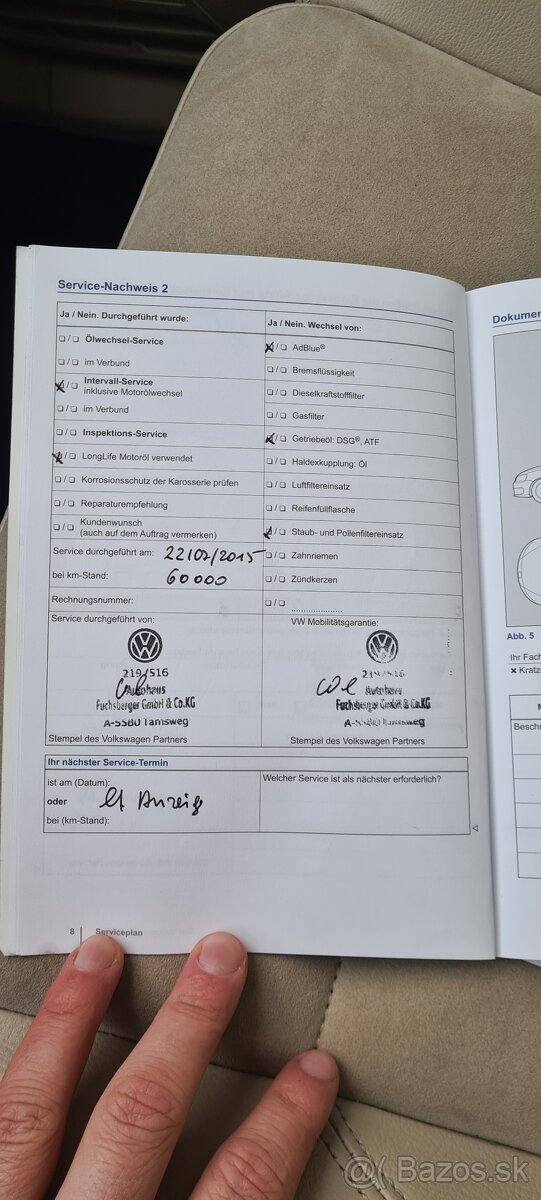 Service-Nachweis 2
Ja / Nein. Durchgeführt wurde:
☐ / ☐ Ölwechsel-Service
☐ / ☐ im Verbund
☒ / ☐ Intervall-Service
inklusive Motorölwechsel
☐ / ☐ im Verbund
☐ / ☐ Inspektions-Service
☒ / ☐ LongLife Motoröl verwendet
☐ / ☐ Korrosionsschutz der Karosserie prüfen
☐ / ☐ Reparaturempfehlung
☐ / ☐ Kundenwunsch
(auch auf dem Auftrag vermerken)
Service durchgeführt am: 22/07/2015
bei km-Stand: 60000
Rechnungsnummer:
Ja / Nein. Wechsel von:
☒ / ☐ AdBlue®
☐ / ☐ Bremsflüssigkeit
☐ / ☐ Dieselkraftstofffilter
☐ / ☐ Gasfilter
☒ / ☐ Getriebeöl: DSG®, ATF
☐ / ☐ Haldexkupplung: Öl
☐ / ☐ Luftfiltereinsatz
☐ / ☐ Reifenfüllflasche
☒ / ☐ Staub- und Pollenfiltereinsatz
☐ / ☐ Zahnriemen
☐ / ☐ Zündkerzen
☐ / ☐ ......................
Service durchgeführt von:
219/516
Autohaus
Fuchsberger GmbH & Co.KG
A-5580 Tamsweg
Stempel des Volkswagen Partners
VW Mobilitätsgarantie:
219/516
Autohaus
Fuchsberger GmbH & Co.KG
A-5580 Tamsweg
Stempel des Volkswagen Partners
Ihr nächster Service-Termin
ist am (Datum):
oder lt Anzeig
bei (km-Stand):
Welcher Service ist als nächster erforderlich?
8 Serviceplan
Dokumen
Abb. 5
Ihr Fach
× Kratz
Beschr
Bazos.sk